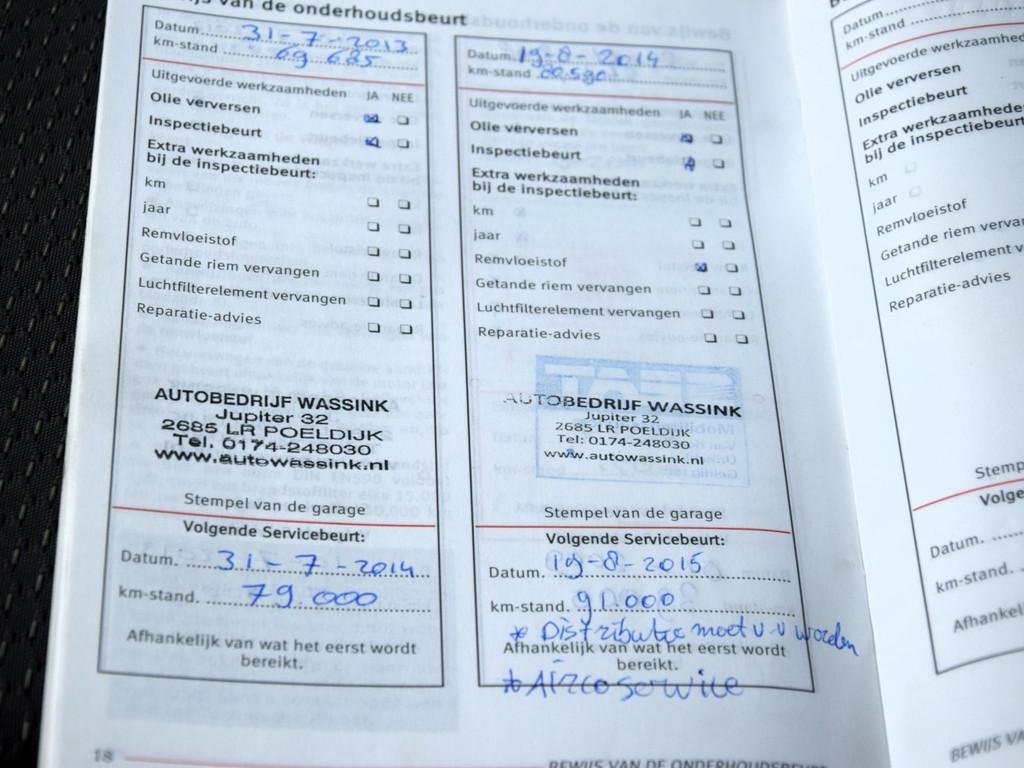 van de onderhoudsbeurt
Datum. 31-7-2013
km-stand 69 685
Uitgevoerde werkzaamheden JA NEE
Olie verversen
Inspectiebeurt
Extra werkzaamheden
bij de inspectiebeurt:
km
jaar
Remvloeistof
Getande riem vervangen
Luchtfilterelement vervangen
Reparatie-advies
AUTOBEDRIJF WASSINK
Jupiter 32
2685 LR POELDIJK
Tel. 0174-248030
www.autowassink.nl
Stempel van de garage
Volgende Servicebeurt:
Datum. 31-7-2014
km-stand. 79.000
Afhankelijk van wat het eerst wordt
bereikt.
18
Datum. 19-8-2014
km-stand
Uitgevoerde werkzaamheden JA NEE
Olie verversen
Inspectiebeurt
Extra werkzaamheden
bij de inspectiebeurt:
km
jaar
Remvloeistof
Getande riem vervangen
Luchtfilterelement vervangen
Reparatie-advies
AUTOBEDRIJF WASSINK
Jupiter 32
2685 LR POELDIJK
Tel: 0174-248030
www.autowassink.nl
Stempel van de garage
Volgende Servicebeurt:
Datum. 19-8-2015
km-stand. 91.000
* Distributie moet v.v worden
Afhankelijk van wat het eerst wordt
bereikt.
* Aircoservice
BEWIJS VAN DE ONDERHOUDSBEURT
Datum.
km-stand
Uitgevoerde werkzaamhed
Olie verversen
Inspectiebeurt
Extra werkzaamheden
bij de inspectiebeurt
km
jaar
Remvloeistof
Getande riem verva
Luchtfilterelement v
Reparatie-advies
Stemp
Volge
Datum.
km-stand.
Afhankelij
BEWIJS VA